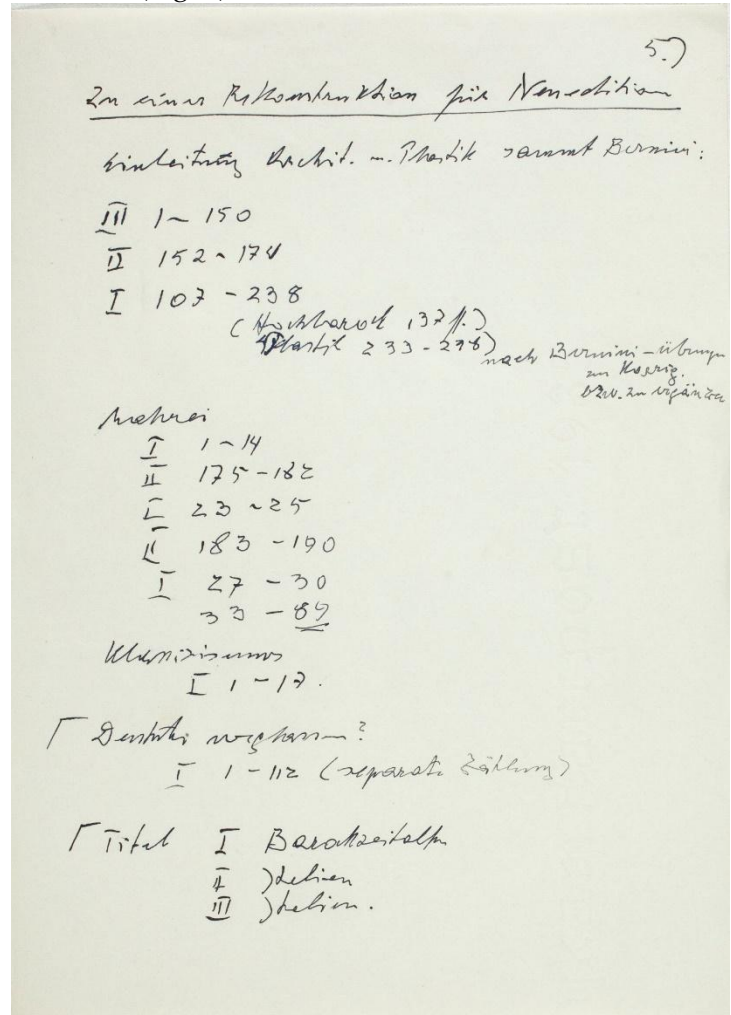 5.)
Zu einer Rekonstruktion für Neuedition
Einleitung Archit. u. Plastik sammt Bernini:
III 1 - 150
II 152 - 174
I 107 - 238
(Hochbarock 137 ff.)
Plastik 233 - 238) nach Bernini-übungen
zu Korrig.
bzw. zu ergänzen
Malerei
I 1 - 14
II 175 - 182
I 23 - 25
II 183 - 190
I 27 - 30
33 - 89
Klassizismus
I 1 - 17.
Deutsche weglassen?
I 1 - 112 (separate Zählung)
Titel I Barockzeitalter
II Italien
III Italien.